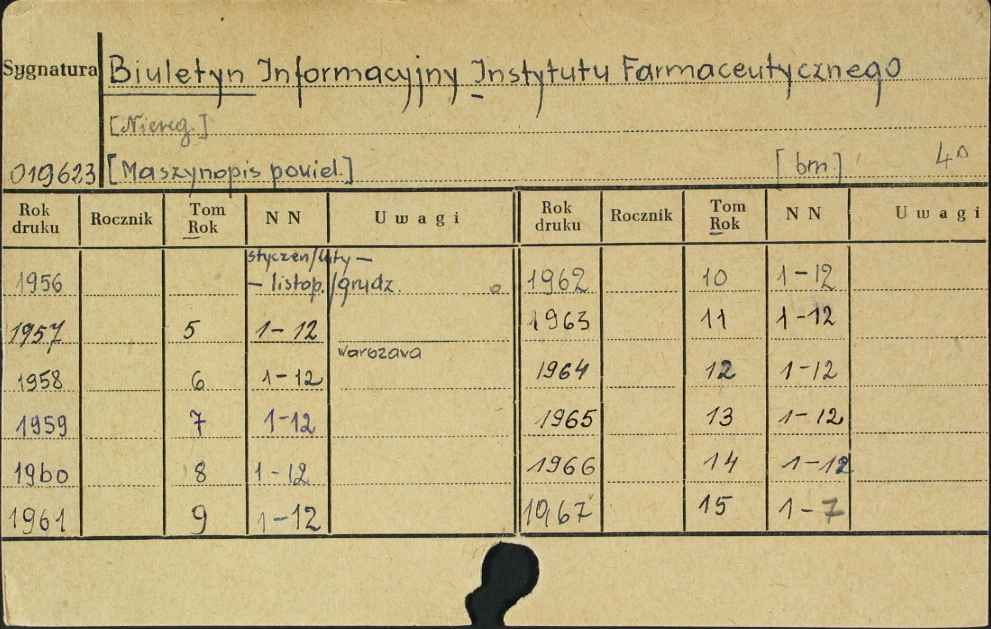 Sygnatura Biuletyn Informacyjny Instytutu Farmaceutycznego
[Niereg.]
019623 [Maszynopis powiel.] [bm] 4°
Rok druku Rocznik Tom Rok N N Uwagi Rok druku Rocznik Tom Rok N N Uwagi
1956 styczeń/luty – – listop./grudz. 1962 10 1-12
1957 5 1-12 1963 11 1-12
Warszawa
1958 6 1-12 1964 12 1-12
1959 7 1-12 1965 13 1-12
1960 8 1-12 1966 14 1-12
1961 9 1-12 1967 15 1-7